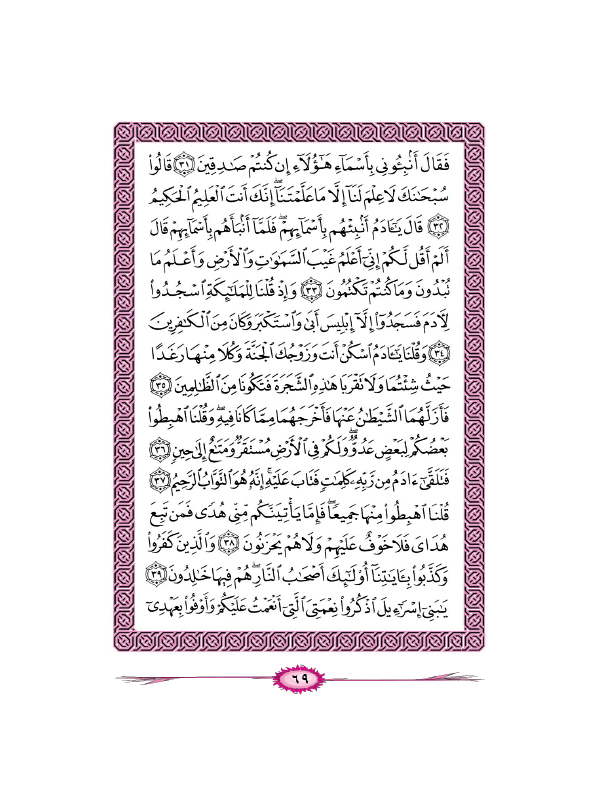 فَقَالَ أَنۢبِـُٔونِى بِأَسۡمَآءِ هَٰٓؤُلَآءِ إِن كُنتُمۡ صَٰدِقِينَ ﴿٣١﴾ قَالُوا۟
سُبۡحَٰنَكَ لَا عِلۡمَ لَنَآ إِلَّا مَا عَلَّمۡتَنَآۖ إِنَّكَ أَنتَ ٱلۡعَلِيمُ ٱلۡحَكِيمُ
﴿٣٢﴾ قَالَ يَٰٓـَٔادَمُ أَنۢبِئۡهُم بِأَسۡمَآئِهِمۡۖ فَلَمَّآ أَنۢبَأَهُم بِأَسۡمَآئِهِمۡ قَالَ
أَلَمۡ أَقُل لَّكُمۡ إِنِّىٓ أَعۡلَمُ غَيۡبَ ٱلسَّمَٰوَٰتِ وَٱلۡأَرۡضِ وَأَعۡلَمُ مَا
تُبۡدُونَ وَمَا كُنتُمۡ تَكۡتُمُونَ ﴿٣٣﴾ وَإِذۡ قُلۡنَا لِلۡمَلَٰٓئِكَةِ ٱسۡجُدُوا۟
لِأٓدَمَ فَسَجَدُوٓا۟ إِلَّآ إِبۡلِيسَ أَبَىٰ وَٱسۡتَكۡبَرَ وَكَانَ مِنَ ٱلۡكَٰفِرِينَ
﴿٣٤﴾ وَقُلۡنَا يَٰٓـَٔادَمُ ٱسۡكُنۡ أَنتَ وَزَوۡجُكَ ٱلۡجَنَّةَ وَكُلَا مِنۡهَا رَغَدًا
حَيۡثُ شِئۡتُمَا وَلَا تَقۡرَبَا هَٰذِهِ ٱلشَّجَرَةَ فَتَكُونَا مِنَ ٱلظَّٰلِمِينَ ﴿٣٥﴾
فَأَزَلَّهُمَا ٱلشَّيۡطَٰنُ عَنۡهَا فَأَخۡرَجَهُمَا مِمَّا كَانَا فِيهِۖ وَقُلۡنَا ٱهۡبِطُوا۟
بَعۡضُكُمۡ لِبَعۡضٍ عَدُوٌّۖ وَلَكُمۡ فِى ٱلۡأَرۡضِ مُسۡتَقَرٌّ وَمَتَٰعٌ إِلَىٰ حِينٍ ﴿٣٦﴾
فَتَلَقَّىٰٓ ءَادَمُ مِن رَّبِّهِۦ كَلِمَٰتٍ فَتَابَ عَلَيۡهِۚ إِنَّهُۥ هُوَ ٱلتَّوَّابُ ٱلرَّحِيمُ ﴿٣٧﴾
قُلۡنَا ٱهۡبِطُوا۟ مِنۡهَا جَمِيعًاۖ فَإِمَّا يَأۡتِيَنَّكُم مِّنِّى هُدًى فَمَن تَبِعَ
هُدَاىَ فَلَا خَوۡفٌ عَلَيۡهِمۡ وَلَا هُمۡ يَحۡزَنُونَ ﴿٣٨﴾ وَٱلَّذِينَ كَفَرُوا۟
وَكَذَّبُوا۟ بِـَٔايَٰتِنَآ أُو۟لَٰٓئِكَ أَصۡحَٰبُ ٱلنَّارِۖ هُمۡ فِيهَا خَٰلِدُونَ ﴿٣٩﴾
يَٰبَنِىٓ إِسۡرَٰٓءِيلَ ٱذۡكُرُوا۟ نِعۡمَتِىَ ٱلَّتِىٓ أَنۡعَمۡتُ عَلَيۡكُمۡ وَأَوۡفُوا۟ بِعَهۡدِىٓ
٦٩